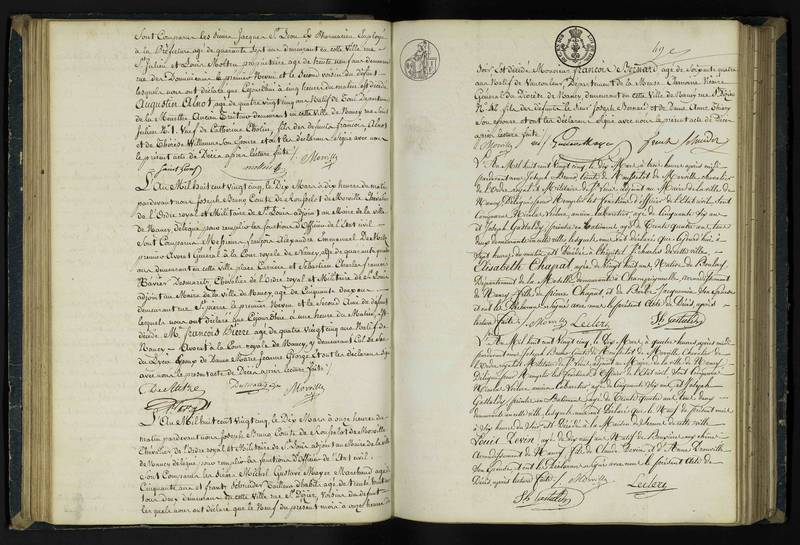 Sont Comparus les Sieurs Jacques St Jean Ex Pharmacien Employé
à la Préfecture agé de quarante sept ans demeurant en cette Ville rue
St Julien et Louis Moltin propriétaire age de trente neuf ans demeurant
rue des Dominicains le premier Neveu et le Second voisin du défunt
lesquels nous ont déclaré que Cejourd'hui à cinq heures du matin est décédé
Augustin Alnot agé de quatre vingt cinq ans Natif de
de la Moselle Ancien demeurant en cette Ville de Nancy rue St
Julien No 1. Veuf de Catherine fils des défunts françois Alnot
et de Thérèse Son Epouse et ont les déclarans Signé avec nous
le présent acte de Décès après lecture faite /. Morville
L'An Mil huit cent Vingt cinq, le Dix Mars à dix heures du matin
pardevant nous Joseph Bruno Comte de Rousselot de Morville Chevalier
de l'Ordre royal et Militaire de St Louis adjoint au Maire de la ville
de Nancy délégué pour remplir les fonctions d'Officier de l'Etat civil.
Sont Comparus les Sieurs Joseph Alexandre Emmanuel De
premier Avocat Général à la Cour royale de Nancy, agé de quarante
ans demeurant en cette Ville place Carrière et Sébastien Charles françois
Xavier Desmarets Chevalier de l'Ordre royal et Militaire de St Louis
adjoint au Maire de la Ville de Nancy agé de Cinquante deux ans
demeurant rue St pierre le premier Neveu et le Second Ami du défunt
lesquels nous ont déclaré que Cejourd'hui à une heure du Matin est
décédé M. françois Pierre agé de quatre vingt cinq ans Natif de
Nancy - Avocat à la Cour royale de Nancy, y demeurant Cul de Sac
du Lycée Epoux de Dame Marie Jeanne George et ont les déclarans Signé
avec nous le présent acte de Décès après lecture faite /.
Morville
L'An Mil huit cent Vingt cinq, le Dix Mars à onze heures du
matin pardevant nous Joseph Bruno Comte de Rousselot de Morville
Chevalier de l'Ordre royal et Militaire de St Louis adjoint au Maire de la ville
de Nancy délégué pour remplir les fonctions d'Officier de l'Etat civil.
Sont Comparus les Sieurs Michel Gustave Mayer Marchand agé de
Cinquante ans et frantz Schneider Tailleur d'habits agé de trente huit ans
tous deux demeurant en cette Ville rue St Dizier, Voisins du défunt
lesquels nous ont déclaré que le Neuf du présent mois à onze heures du
69
Soir Est décédé Monsieur françois Bénard agé de Soixante quatre
ans Natif de Vaucouleurs Département de la Meuse Chanoine Vicaire
Général du Diocèse de Nancy demeurant en cette Ville de Nancy rue St Dizier
No 42, fils des défunts le Sieur Joseph Bénard et de Dame Anne Thiery
Son épouse et ont les déclarans Signé avec nous le présent acte de Décès
après lecture faite /.
Morville Gustave Mayer frantz Schneider
L'An Mil huit cent Vingt cinq, le Dix Mars, à trois heures après midi
pardevant nous Joseph Bruno Comte de Rousselot de Morville chevalier
de l'Ordre royal et Militaire de St Louis adjoint au Maire de la ville de
Nancy Délégué pour remplir les fonctions d'officier de l'Etat civil. Sont
Comparus Nicolas Leclerc, ancien Cabaretier, agé de Cinquante dix ans
et Joseph Gastaldy, peintre en batiment agé de Trente quatre ans, tous
deux demeurans en cette ville lesquels nous ont déclaré que Cejourd'hui à
heures du matin est décédée à l'hôpital St Charles de cette ville
Elisabeth Chapat agée de Vingt huit ans Native de
Département de la Moselle domiciliée à Champigneulles arrondissement
de Nancy fille de pierre Chapat et de Son Epouse
et ont les déclarans Signé avec nous le présent Acte de Décès après
lecture faite /. Morville Leclerc Jh Gastaldy
L'An Mil huit cent Vingt cinq, le Dix Mars à quatre heures après midi
pardevant nous Joseph Bruno Comte de Rousselot de Morville Chevalier de
l'Ordre royal et Militaire de St Louis adjoint au Maire de la ville de Nancy
Délégué pour remplir les fonctions d'Officier de l'Etat civil Sont Comparus
Nicolas Leclerc ancien Cabaretier agé de Cinquante dix ans, et Joseph
Gastaldy, peintre en Batiment, agé de Trente quatre ans tous deux
demeurans en cette ville, lesquels nous ont déclaré que le Neuf du présent mois
à dix heures du Soir est décédé à la Maison de Secours de cette ville
Louis Levin agé de dix neuf ans Natif de Rosières aux Salines
Arrondissement de Nancy, fils de Claude Levin et d'Anne
Son Epouse, et ont les déclarans Signé avec nous le présent acte de
Décès, après lecture faite /. Morville
Jh Gastaldy Leclerc